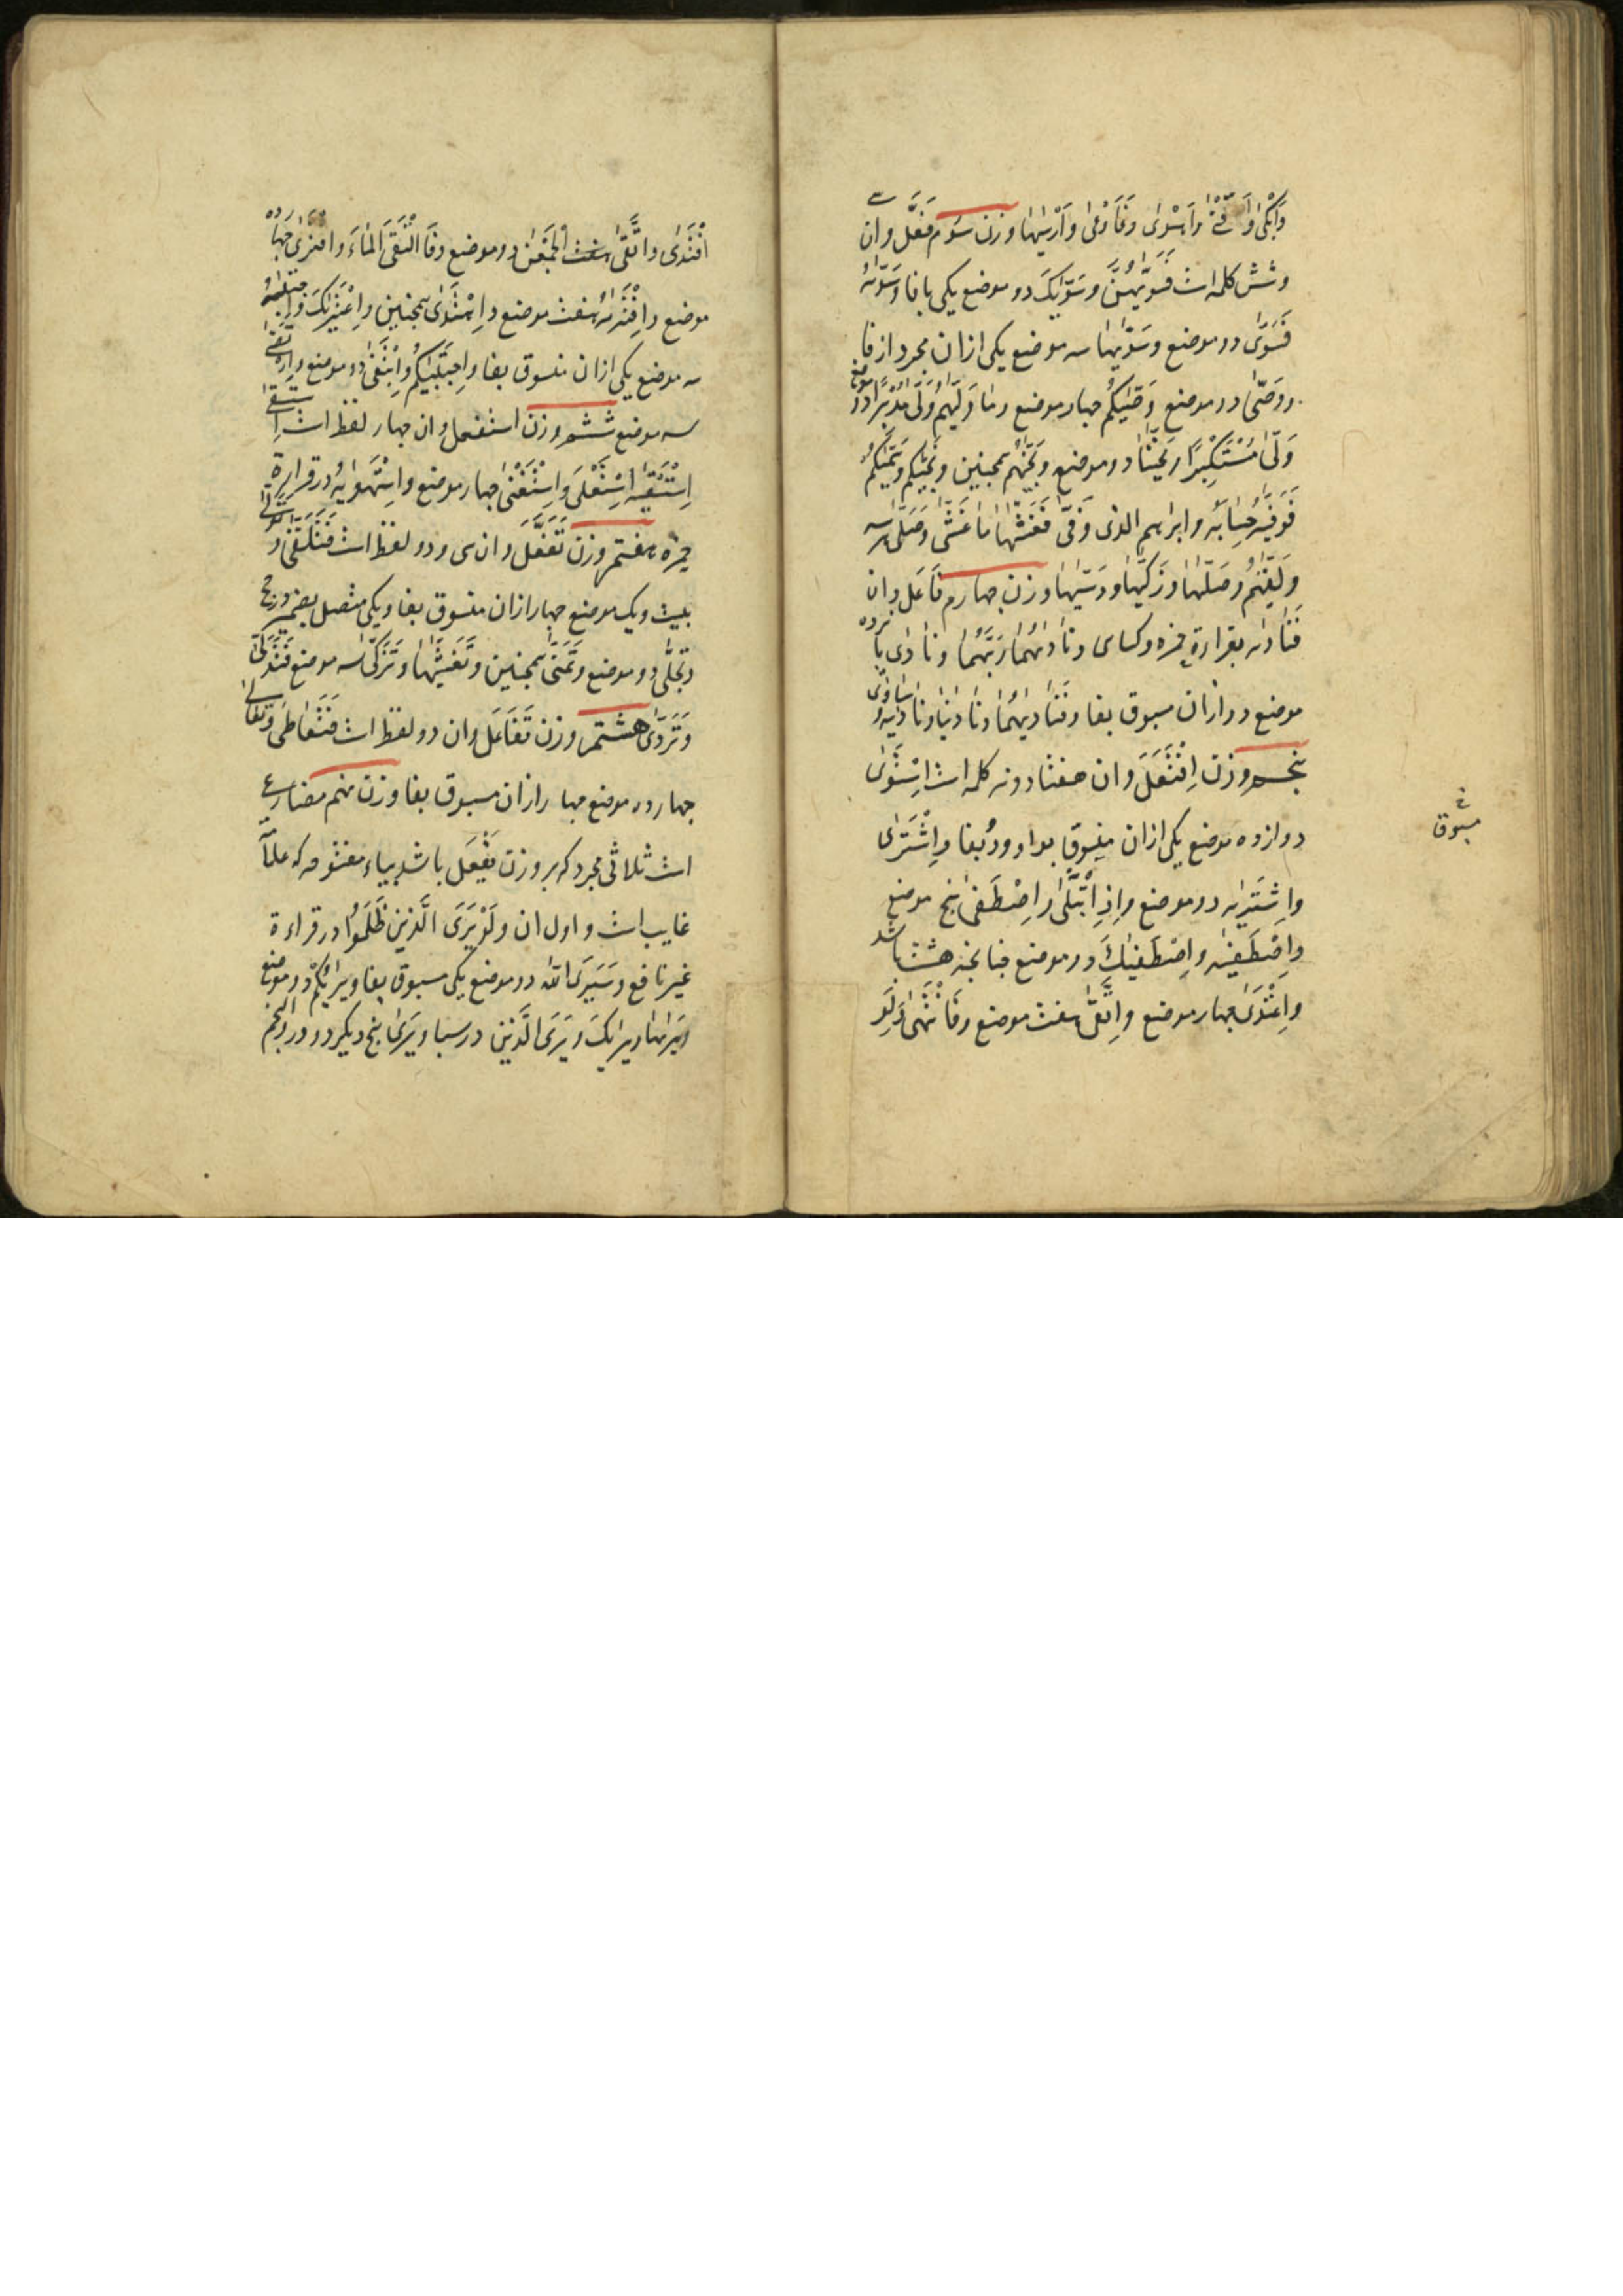 وَاَبْکٰی وَاَقْنٰی وَاَهْوٰی وَفَاَوْعٰی وَاَرْسٰیهَا وزن سوم فَعَّلَ وان سی
وشش کلمه است فَسَوّٰیهُنَّ وسَوّٰیکَ دو موضع یکی با فا وسَوّٰیهُ
فَسَوّٰی دو موضع وسَوّٰیها سه موضع یکی ازان مجرد از فا
ووَصّٰی دو موضع وَصّٰیکُم چهار موضع وما وَلّٰیهُم وَلّٰی مُدْبِرًا دو موضع
وَلّٰی مُسْتَکْبِرًا ونَجّٰینا دو موضع ونَجّٰیهُم همچنین ونَجّٰیکُم وسَمّٰیکُمُ
فَوَفّٰیهُ حِسٰابَهُ وابراهیم الذی وَفّٰی فَغَشّٰیها ما غَشّٰی وصَلّٰی سه
ولَقّٰیهُم وجَلّٰیها وزَکّٰیها ودَسّٰیها وزن چهارم فَاعَلَ وان
فَنَادٰیه بقراءة حمزه وکسای ونَادٰیهُمَا رَبُّهُمَا ونَادٰی پانزده
موضع دو ازان مسبوق بفا وفَنَادٰیهَا ونَادٰینا ونَادٰیهُ وسَاوٰی
پنجم وزن اِفْتَعَلَ وان هفتاد ونه کلمه است اِسْتَوٰی
دوازده موضع یکی ازان منسوق بواو ودُو بفا واِشْتَرٰی
واِشْتَرٰیه دو موضع واِذِ ابْتَلٰی واِصْطَفٰی پنج موضع
واِصْطَفٰیه واِصْطَفٰیکِ دو موضع چنانچه هشت باشد
واِعْتَدٰی چهار موضع واِتَّقٰی هفت موضع وفَانْتَهٰی ولَوِ
مسبوق
افْتَدٰی والْتَقٰی الجَمْعٰن دو موضع وفَالْتَقَی المَاءَ وافْتَرٰی چهارده
موضع وافْتَرٰیهُ هفت موضع واِهْتَدٰی همچنین واِعْتَرٰیکَ واجْتَبٰیهُ
سه موضع یکی ازان منسوق بفا واِجْتَبٰیکُم واِبْتَغٰی دو موضع وارْتَضٰی
سه موضع ششم وزن استفعل وان چهار لفظ است اِسْتَسْقٰی
اِسْتَسْقٰیه اِسْتَعْلٰی وَاِسْتَغْنٰی چهار موضع واِسْتَهْوٰیهُ در قراءة
حمزه هفتم وزن تَفَعَّلَ وان سی ودو لفظ است فَتَلَقّٰی وتَوَلّٰی
بیست ویک موضع چهار ازان منسوق بفا ویکی متصل بضمیر
وتَجَلّٰی دو موضع وتَمَنّٰی همچنین وتَغَشّٰیها وتَزَکّٰی سه موضع فَتَدَلّٰی
وتَرَدّٰی هشتم وزن تَفَاعَلَ وان دو لفظ است فَتَعَاطٰی وتَعَالٰی
چهارده موضع چهار ازان مسبوق بفا وزن نهم مضارع
است ثلاثی مجرد که بر وزن یَفْعَل باشد بیاء مفتوحه که علامة
غایب است واول ان ولَوْ یَرَی الَّذِینَ ظَلَمُوا در قراءة
غیر نافع وسَیَرَی اللّه دو موضع یکی مسبوق بفا ویَرٰیکُمْ دو موضع
ویَرٰیها ویَرٰیکَ ویَرَی الَّذِینَ در سبا ویَرٰی پنج دیگر دو در والنجم